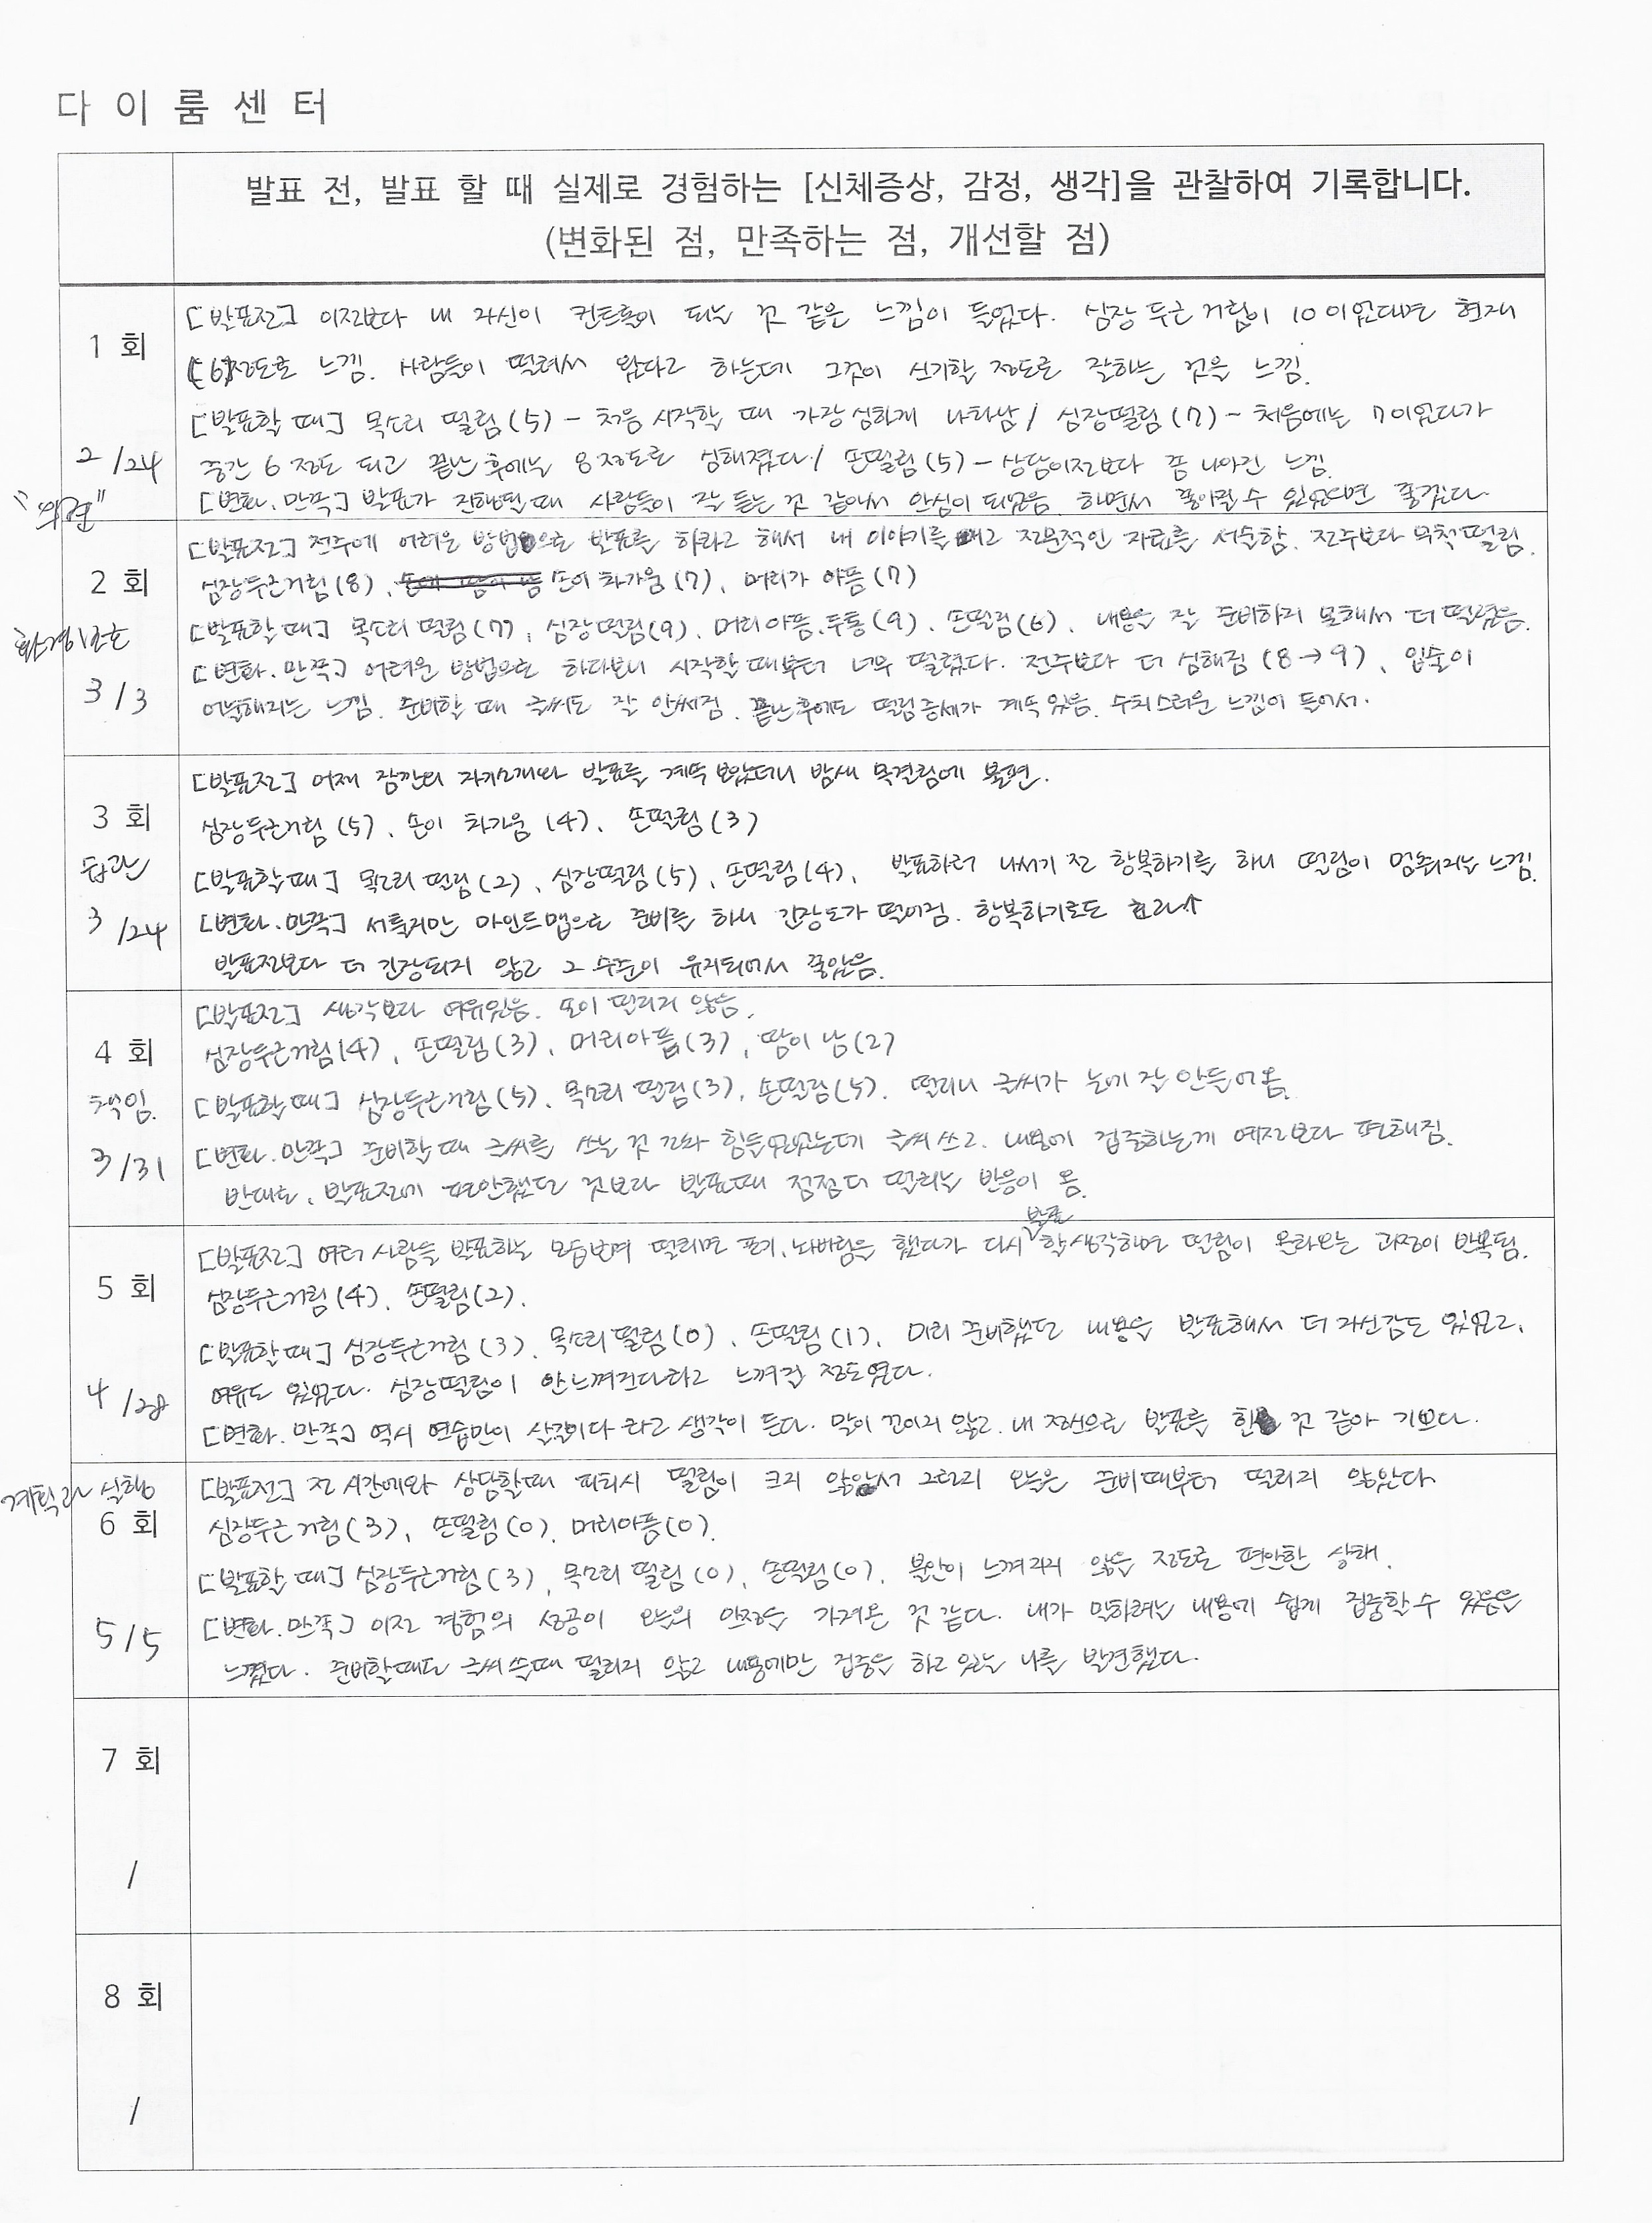 다 이 룸 센 터
발표 전, 발표 할 때 실제로 경험하는 [신체증상, 감정, 생각]을 관찰하여 기록합니다.
(변화된 점, 만족하는 점, 개선할 점)
1 회
2/24
[발표전] 이전보다 내 자신이 컨트롤이 되는 것 같은 느낌이 들었다. 심장 두근거림이 10이었다면 현재
(6)정도로 느낌. 사람들이 떨려서 왔다고 하는데 그것이 신기할 정도로 잘하는 것을 느낌.
[발표할 때] 목소리 떨림(5) - 처음 시작할 때 가장 심하게 나타남 / 심장떨림(7) - 처음에는 7이었다가
중간 6정도 되고 끝난 후에는 8정도로 심해졌다 / 손떨림(5) - 상담이전보다 쫌 나아진 느낌.
[변화.만족] 발표가 진행될 때 사람들이 잘 듣는 것 같아서 안심이 되었음. 하면서 풀어질 수 있었으면 좋겠다.
2 회
3/3
[발표전] 전주에 어려운 방법으로 발표를 하라고 해서 내 이야기를 빼고 전문적인 자료를 서술함. 전주보다 무척 떨림.
심장두근거림(8), 손이 차가움(7), 머리가 아픔(7)
[발표할 때] 목소리 떨림(7), 심장떨림(9), 머리아픔.두통(9), 손떨림(6). 내용을 잘 준비하지 못해서 더 떨렸음.
[변화.만족] 어려운 방법으로 하다보니 시작할 때부터 너무 떨렸다. 전주보다 더 심해짐(8→9), 입술이
어눌해지는 느낌. 준비할 때 글씨도 잘 안써짐. 끝난후에도 떨림증세가 계속 있음. 수치스러운 느낌이 들어서.
3 회
습관
3/24
[발표전] 어제 잠깐의 자기소개와 발표를 계속 보았더니 밤새 목결림에 불편.
심장두근거림(5), 손이 차가움(4), 손떨림(3)
[발표할때] 목소리 떨림(2), 심장떨림(5), 손떨림(4), 발표하러 나서기 전 항복하기를 하니 떨림이 멈춰지는 느낌.
[변화.만족] 서툴지만 마인드맵으로 준비를 하니 긴장도가 떨어짐. 항복하기로도 효과↑
발표전보다 더 긴장되지 않고 그 수준이 유지되어서 좋았음.
4 회
책임.
3/31
[발표전] 생각보다 여유있음. 몸이 떨리지 않음.
심장두근거림(4), 손떨림(3), 머리아픔(3), 땀이 남(2)
[발표할때] 심장두근거림(5), 목소리 떨림(3), 손떨림(5). 떨리니 글씨가 눈에 잘 안들어옴.
[변화.만족] 준비할 때 글씨를 쓰는 것 조차 힘들었었는데 글씨 쓰고. 내용에 집중하는게 예전보다 편해짐.
반대로, 발표전에 편안했던 것보다 발표때 점점더 떨리는 반응이 옴.
5 회
4/28
[발표전] 여러 사람들 발표하는 모습보며 떨리면 포기.놔버림을 했다가 다시 발표 할 생각하면 떨림이 올라오는 과정이 반복됨.
심장두근거림(4), 손떨림(2).
[발표할때] 심장두근거림(3), 목소리 떨림(0), 손떨림(1), 미리 준비했던 내용을 발표해서 더 자신감도 있었고,
여유도 있었다. 심장떨림이 안느껴진다하고 느껴질 정도였다.
[변화.만족] 역시 연습만이 살길이다 라고 생각이 든다. 말이 꼬이지 않고. 내 자신으로 발표를 한 것 같아 기쁘다.
계획과 실행
6 회
5/5
[발표전] 전 시간에와 상담할때 피피시 떨림이 크지 않았서 그런지 오늘은 준비때부터 떨리지 않았다
심장두근거림(3), 손떨림(0), 머리아픔(0).
[발표할 때] 심장두근거림(3), 목소리 떨림(0), 손떨림(0). 불안이 느껴지지 않을 정도로 편안한 상태.
[변화.만족] 이전 경험의 성공이 오늘의 안정을 가져온 것 같다. 내가 말하려는 내용에 쉽게 집중할 수 있음을
느꼈다. 준비할때도 글씨 쓸때 떨리지 않고 내용에만 집중을 하고 있는 나를 발견했다.
7 회
/
8 회
/